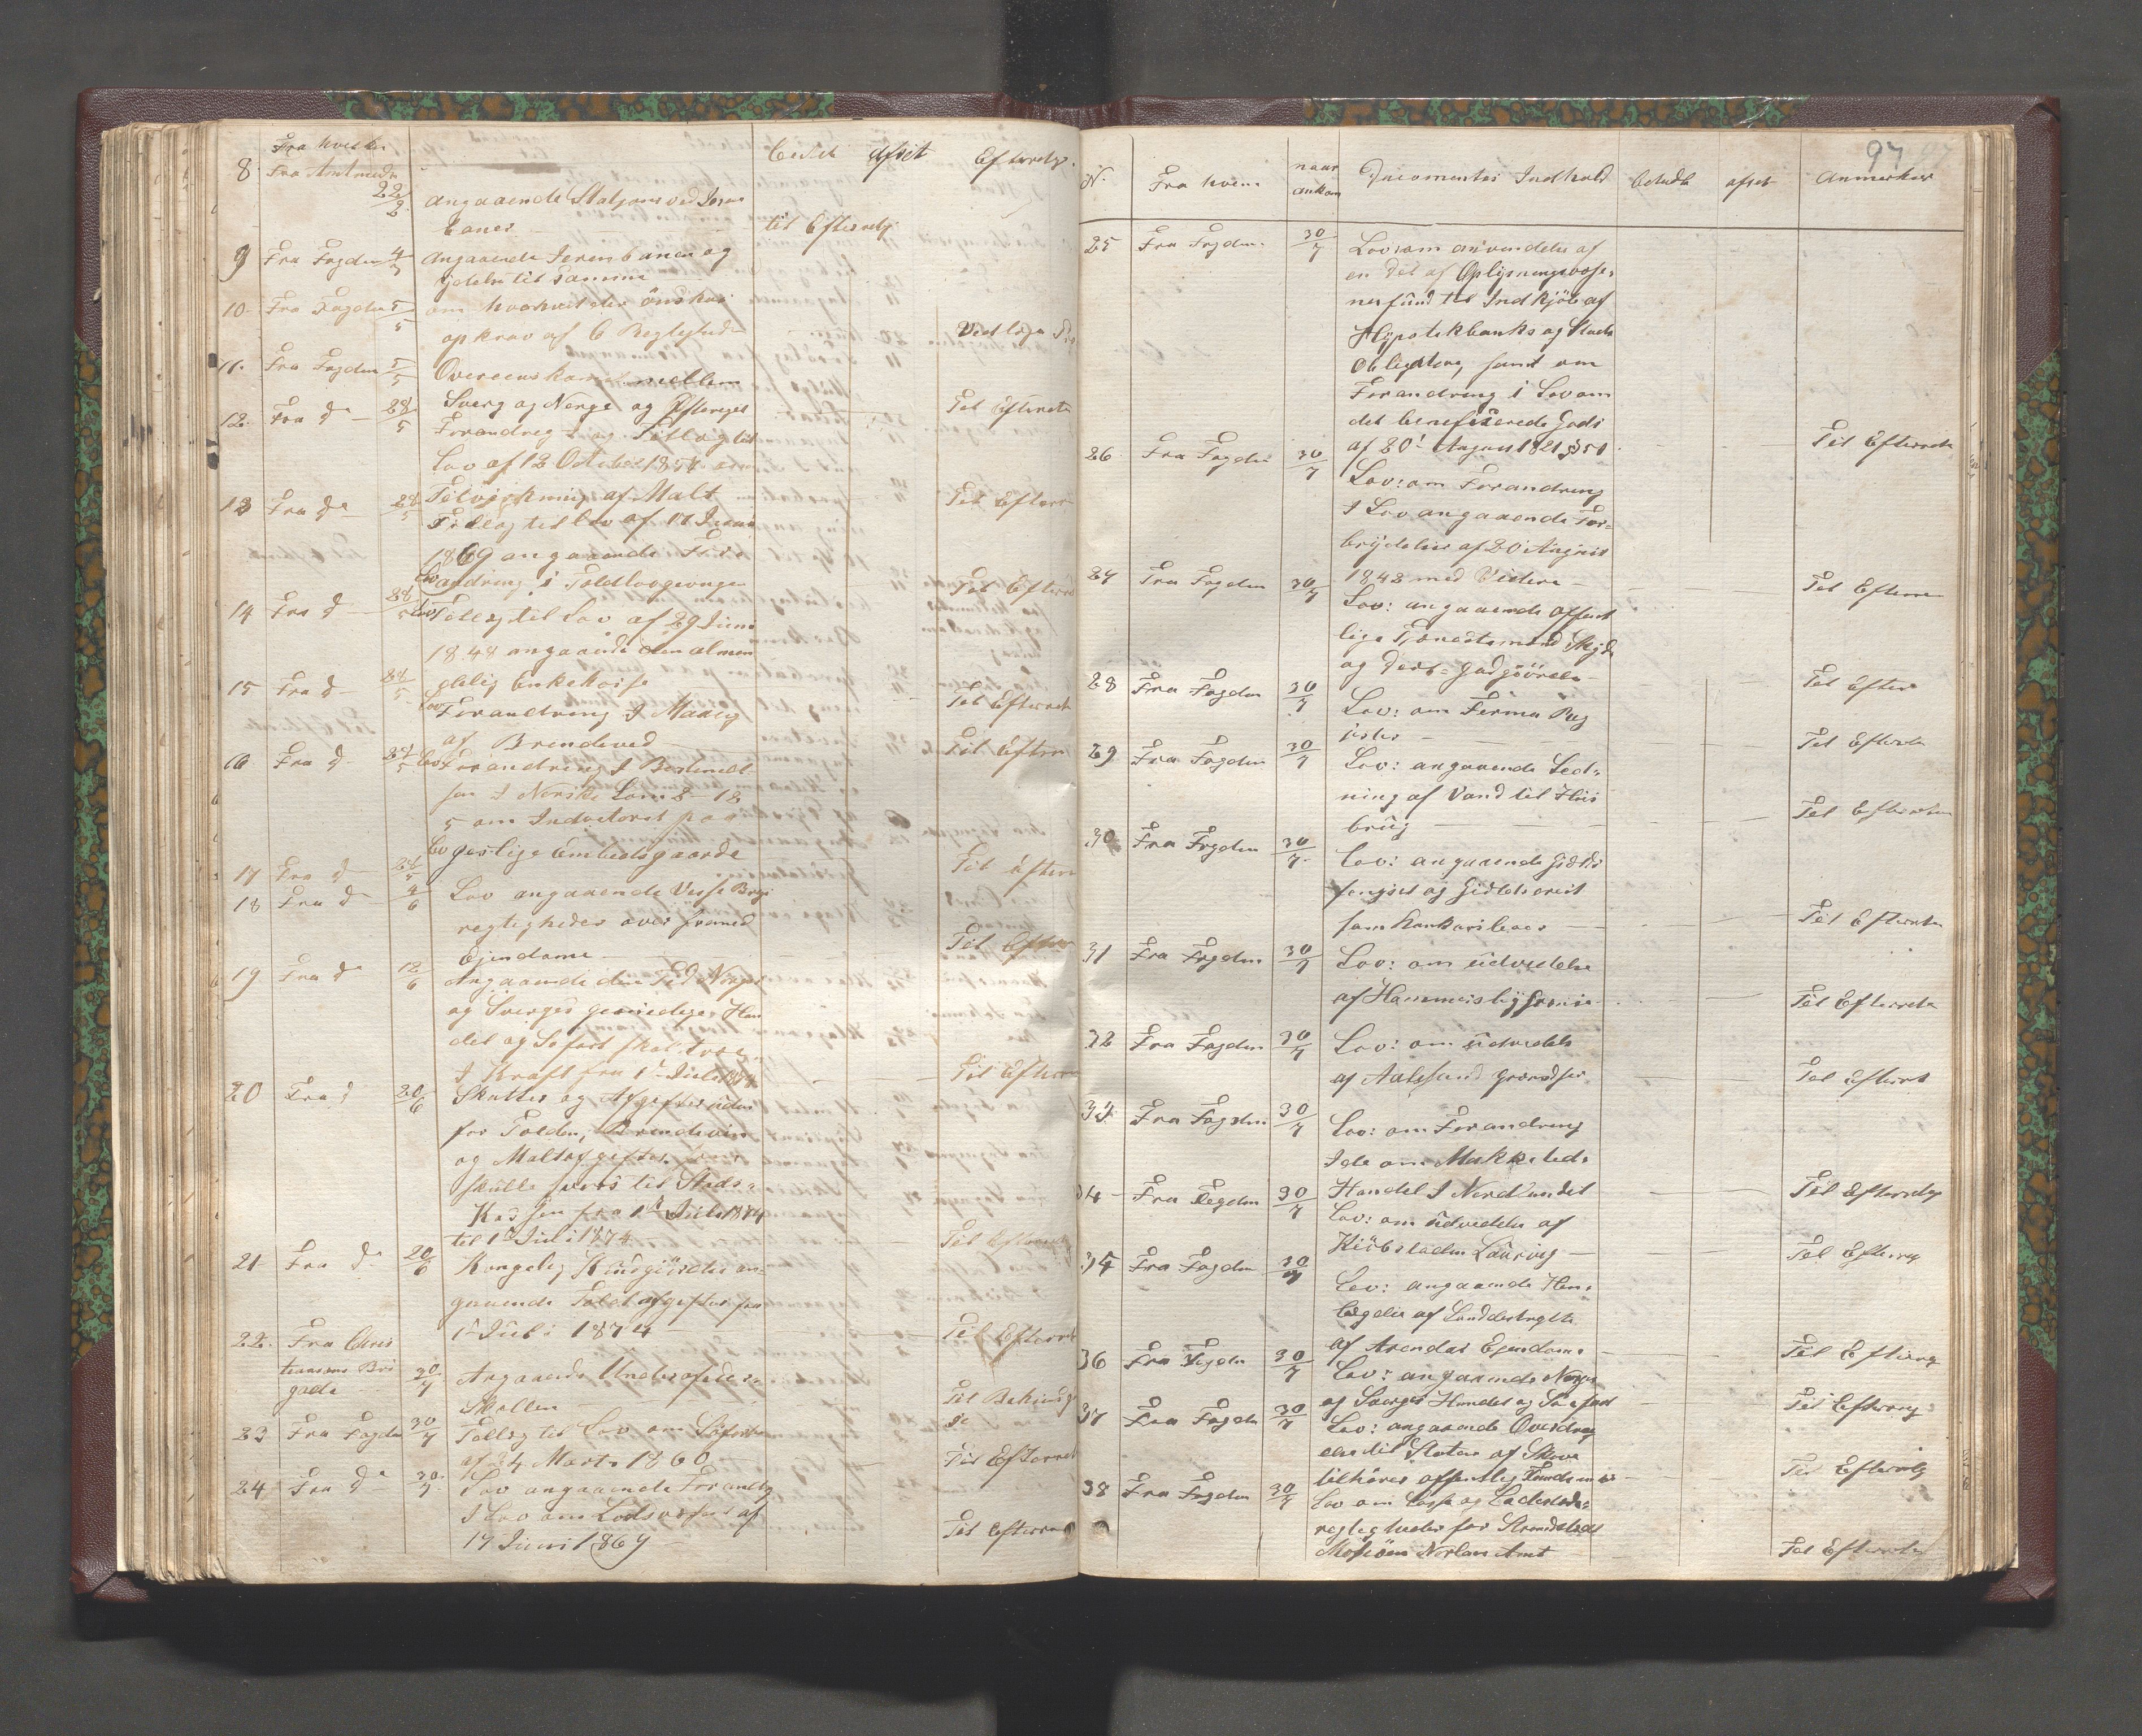 Fra hvilken
betalt afsit Efterretg.
8. Fra Amtmedn 22/2 angaaende Stasjons ved Jern
baner — til Efterretg
9 Fra Fogden 4/3 Angaaende Jerenbanen og
ydelse til Samme
10 Fra Fogden 5/5 om hvorhvit der önskes
opkrav af
Vedlöga
11. Fra Fogden 5/5 Overeenskomst mellem
Sverg og Norge og Til Efterretn
12. Fra do — 28/5 Forandreg I og Tillæg til
Lov af 12 October 1857 om
Tilvirkning af Malt Til Efterr
13 Fra do — 28/5 Tillæg til lov af 17 Juni
1869 angaaende For
andring i Toldlovgivnge Til Efterret
14 Fra d — 28/5 Lov Tillæg til Lov af 29 Juni
1848 angaaende den almin
delig Enkekasse — Til Efterret
15 Fra d — 28/5 Lov Forandring I Maalig
af Brendeved — Til Efterr
16 Fra d — 28/5 Lov Forandring I Bestemel
sen I Norske Lovs 2-12
5 om Indvetoret paa
geslige Embedsgaarde
17 Fra d — 28/5 Til Efterr
18 Fra d — 4/6 Lov angaaende Visse Brugs
regtigheder over fremed
Ejendome — Til Efter
19 Fra do 12/6 Angaaende den Tid Norges
og Sverges gjensidige Han
del og Sofart skal træe
I Kraft fra 1te Juli 1874 Til Efterr
20 Fra d 20/6 Skatter og Afgifter uden
for Tolden, Brendevin
og Maltafgiften som
skulle svares til Stads-
Kassen fra 1te Juli 1874
til 1te Juli 1874 Til Efterretg
21 Fra do 20/6 Kongelig Kundgiörelse an-
gaaende Toldafgifter fra
1te Juli 1874 — Til Efterret
22. Fra Chris
tiansans Bri
gade — 20/7 Angaaende Underofisers
Skollen — Til Bekiendtg
se
23 Fra Fogden 30/7 Tillæg til Lov om Söfarten
af 24 Marts 1860 — Til Efterret
24 Fra do 30/7 Lov angaaende Forandrg
I Lov om Lodsvesenet af
17 Juni 1869 — Til Efterret
97
N. Fra hvem naar ankom Documentes Indhold betalt afset Anmerkner
25 Fra Fogden 30/7 Lov: om anvendelse af
en Del af Oplysningsvæse,
nes fund til Indkjöb af
Hypotekbanks og Stads
Obligation, samt om
Forandring i Lov om
det benefiserede Gods
af 20de August 1821 § 51 — Til Efterretn
26 Fra Fogden 30/7 Lov: om Forandring
I Lov angaaende For-
brydelser af 20 August
1842 med Videre — Til Efterre
27 Fra Fogden 30/7 Lov: angaaende Offent
lige Tjenestemænd Skyds
og Ders Godgjörelse — Til Efter
28 Fra Fogden 30/7 Lov: om Firma Reg
ister — Til Efterretn
29 Fra Fogden 30/7 Lov: angaaende Led-
ning af Vand til Hus
brug — Til Efterretn
30 Fra Fogden 30/7 Lov: angaaende Gields
fengsel og Gieldsarest
sam Konkursloven — Til Efterretn
31 Fra Fogden 30/7 Lov: om udvidelse
af Hammersby — Til Efterretn
32 Fra Fogden 30/7 Lov: om udvidelse
af Aalesund grændser — Til Efterret
33. Fra Fogden 30/7 Lov: om Forandring
I de om Makkeleds
Handel I Nordlandet — Til Efterretg
34 Fra Fogden 30/7 Lov: om udvidelse af
Kiöbstaden Laurvig — Til Efterreg
35 Fra Fogden 30/7 Lov: angaaende Hen-
læggelse af
af Arendal Ejendome — Til Efterrg
36 Fra Fogden 30/7 Lov: angaaende Norges
og Sverges Handel og Söefart Til Efterreg
37 Fra Fogden 30/7 Lov: angaaende Overdrag
else til Staten af Skove
tilhörer offentlig — Til Efterretg
38 Fra Fogden 30/7 Lov om Losse og Ladesteds-
regtigheder for Strandstedet
Mosiöen Norlans Amt — Til Efterretn